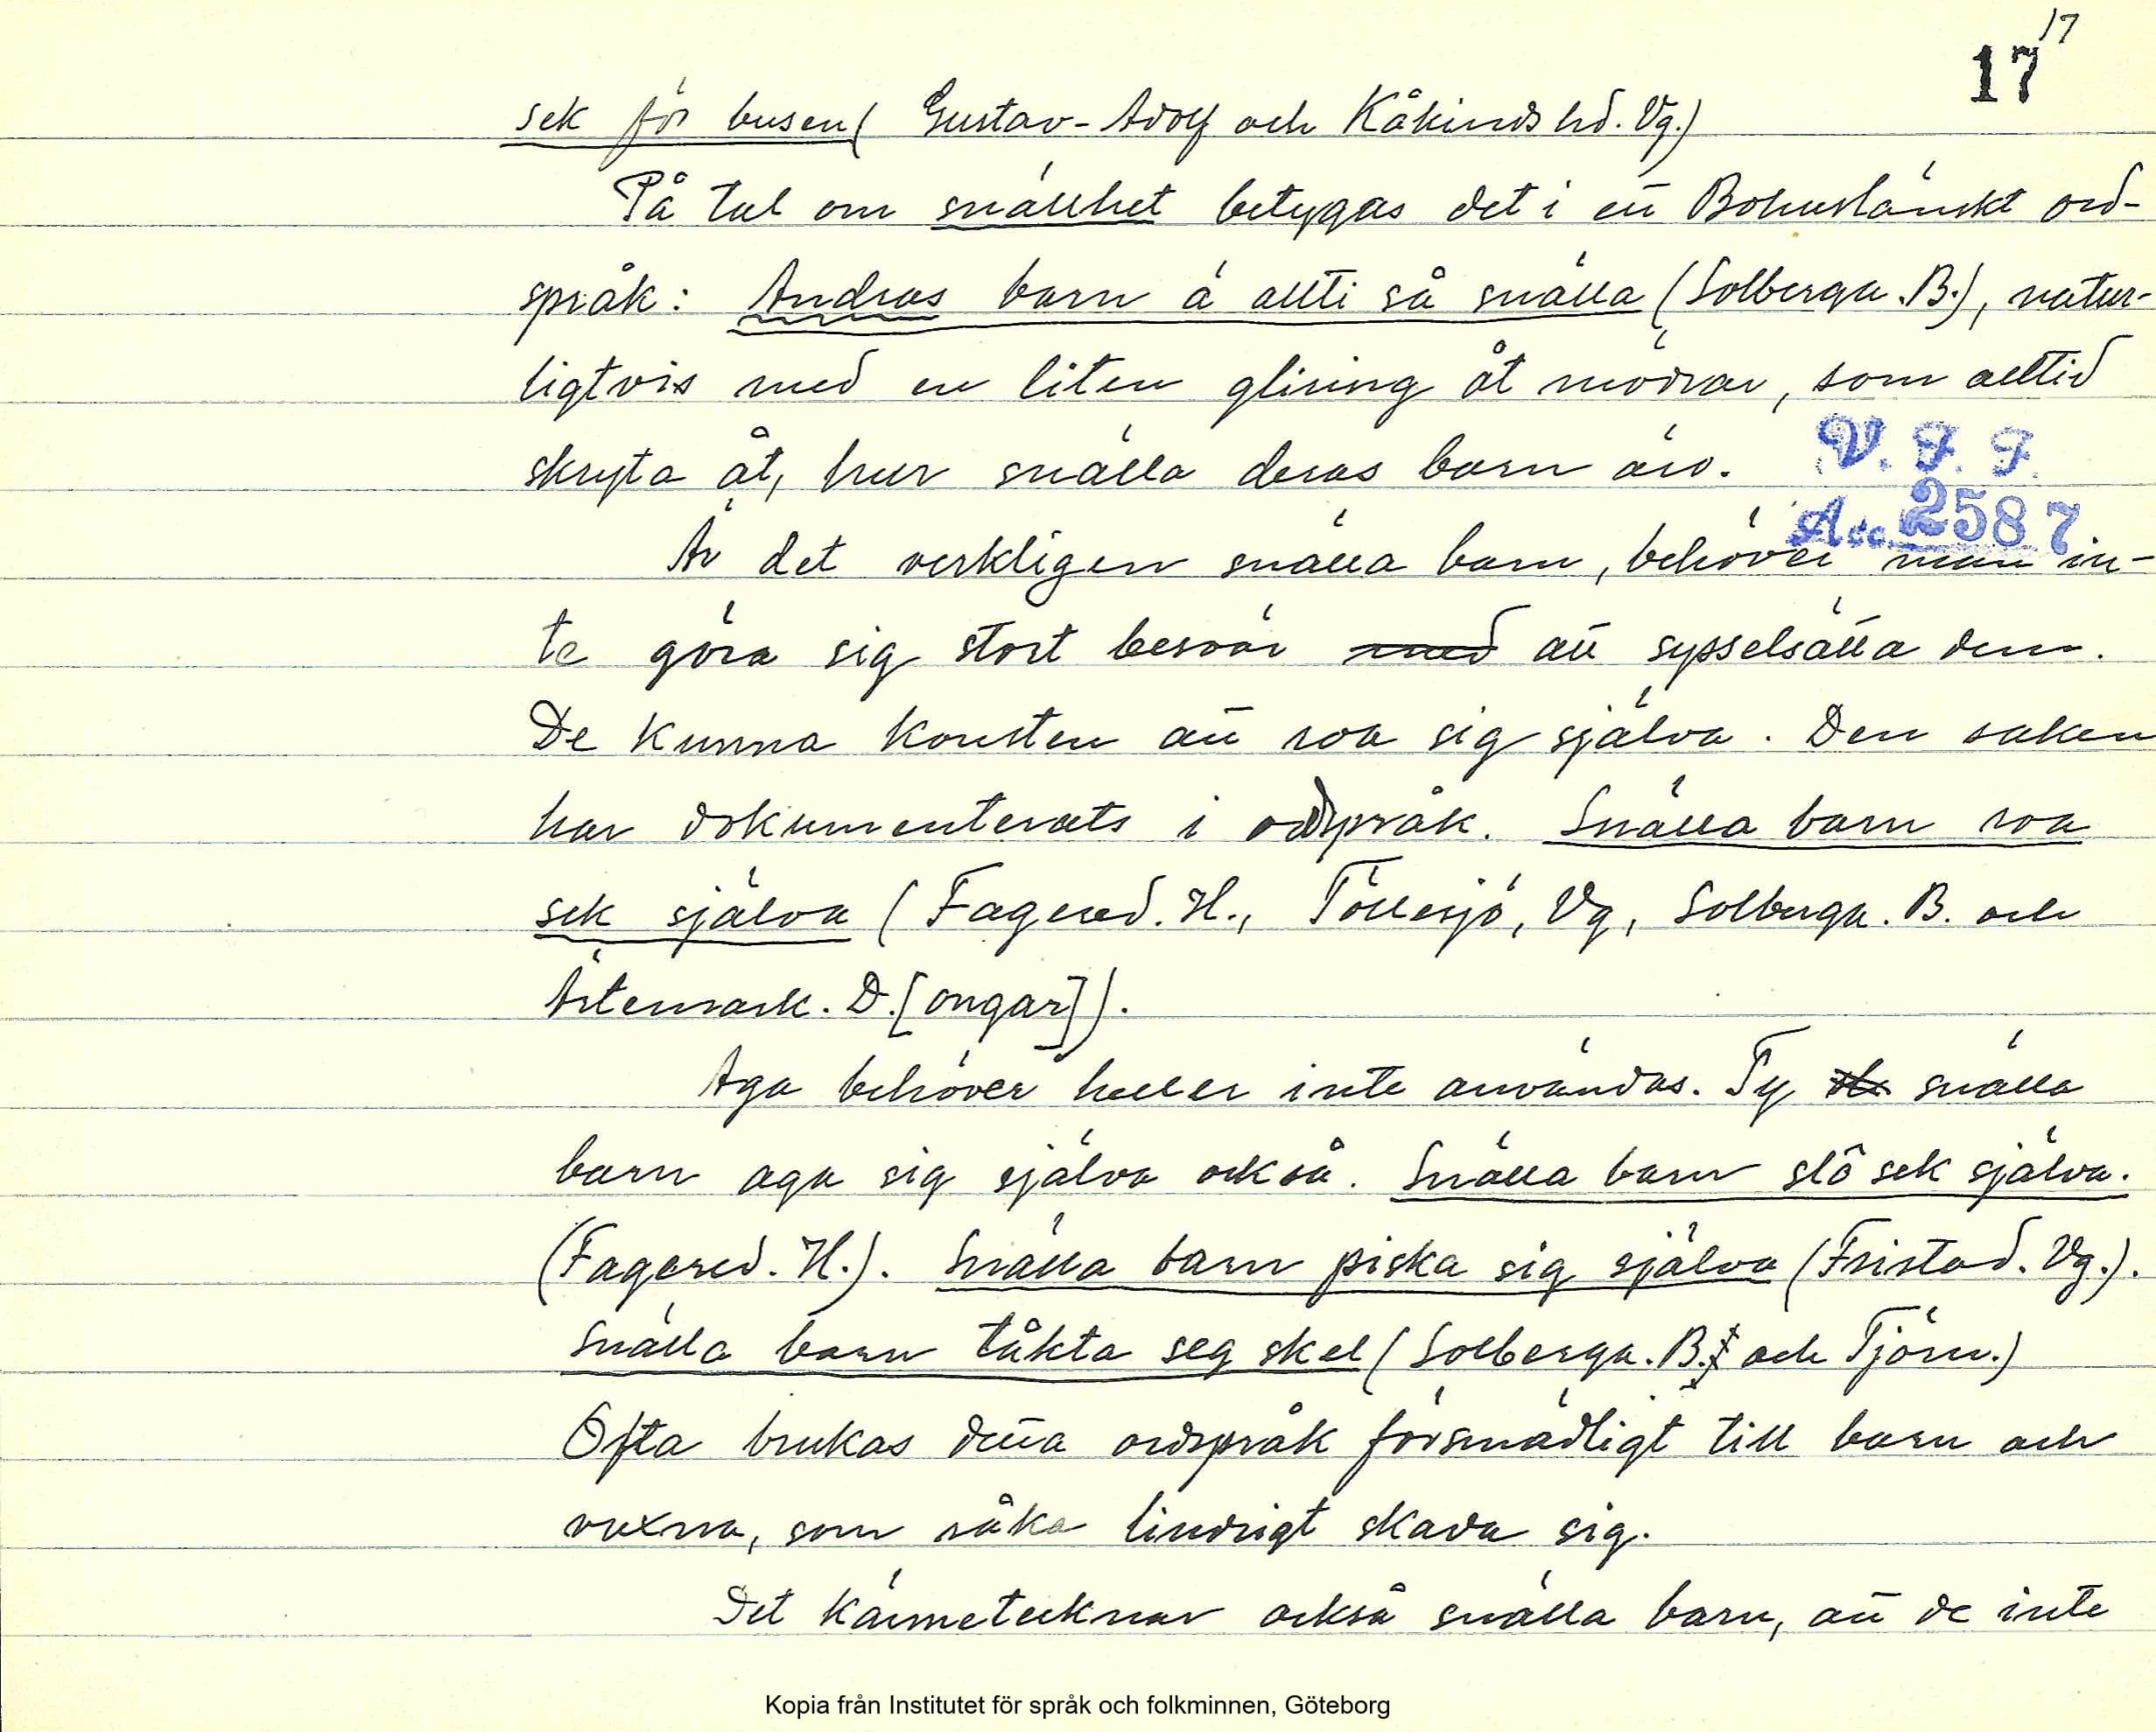 17
17
sek för busen (Gustav-Adolf och Kåkinds hd. Vg.)
På tal om snällhet betygas det i ett Bohuslänskt ord-
språk: Andras barn ä allti så snälla (Solberga. B.), natur-
ligtvis med en liten gliring åt mödrar, som alltid
skryta åt, hur snälla deras barn äro.
V. F. F.
Acc. 2587
Är det verkligen snälla barn, behöver man in-
te göra sig stort besvär med att sysselsätta dem.
De kunna konsten att roa sig själva. Den saken
har dokumenterats i ordspråk. Snälla barn roa
sek själva (Fagered. H., Töllesjö, Vg, Solberga. B. och
Ärtemark. D. [ongar]).
Aga behöver heller inte användas. Ty snälla
barn aga sig själva också. Snälla barn slô sek själva.
(Fagered. H.). Snälla barn piska sig själva (Fristad. Vg.).
Snälla barn tåkta seg skel (Solberga. B. och Tjörn.)
Ofta brukas detta ordspråk försmädligt till barn och
vuxna, som råka lindrigt skada sig.
Det kännetecknar också snälla barn, att de inte
Kopia från Institutet för språk och folkminnen, Göteborg